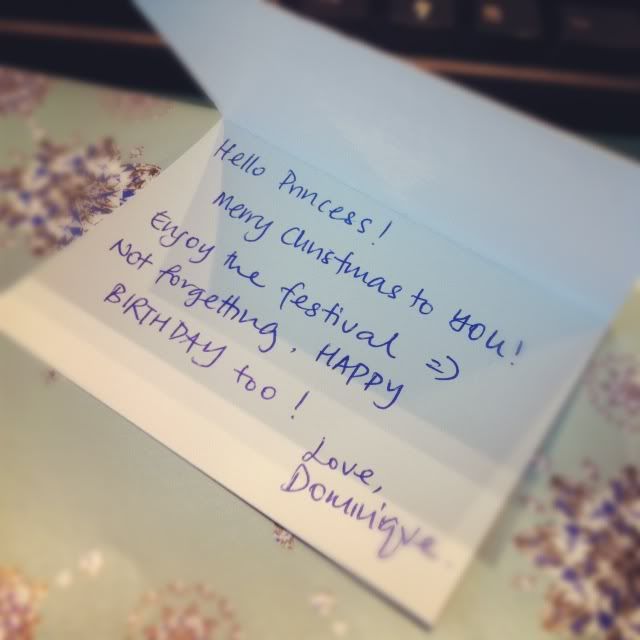 Hello Princess!
Merry Christmas to YOU!
Enjoy the festival =)
Not forgetting, HAPPY
BIRTHDAY too!
Love,
Dominique.